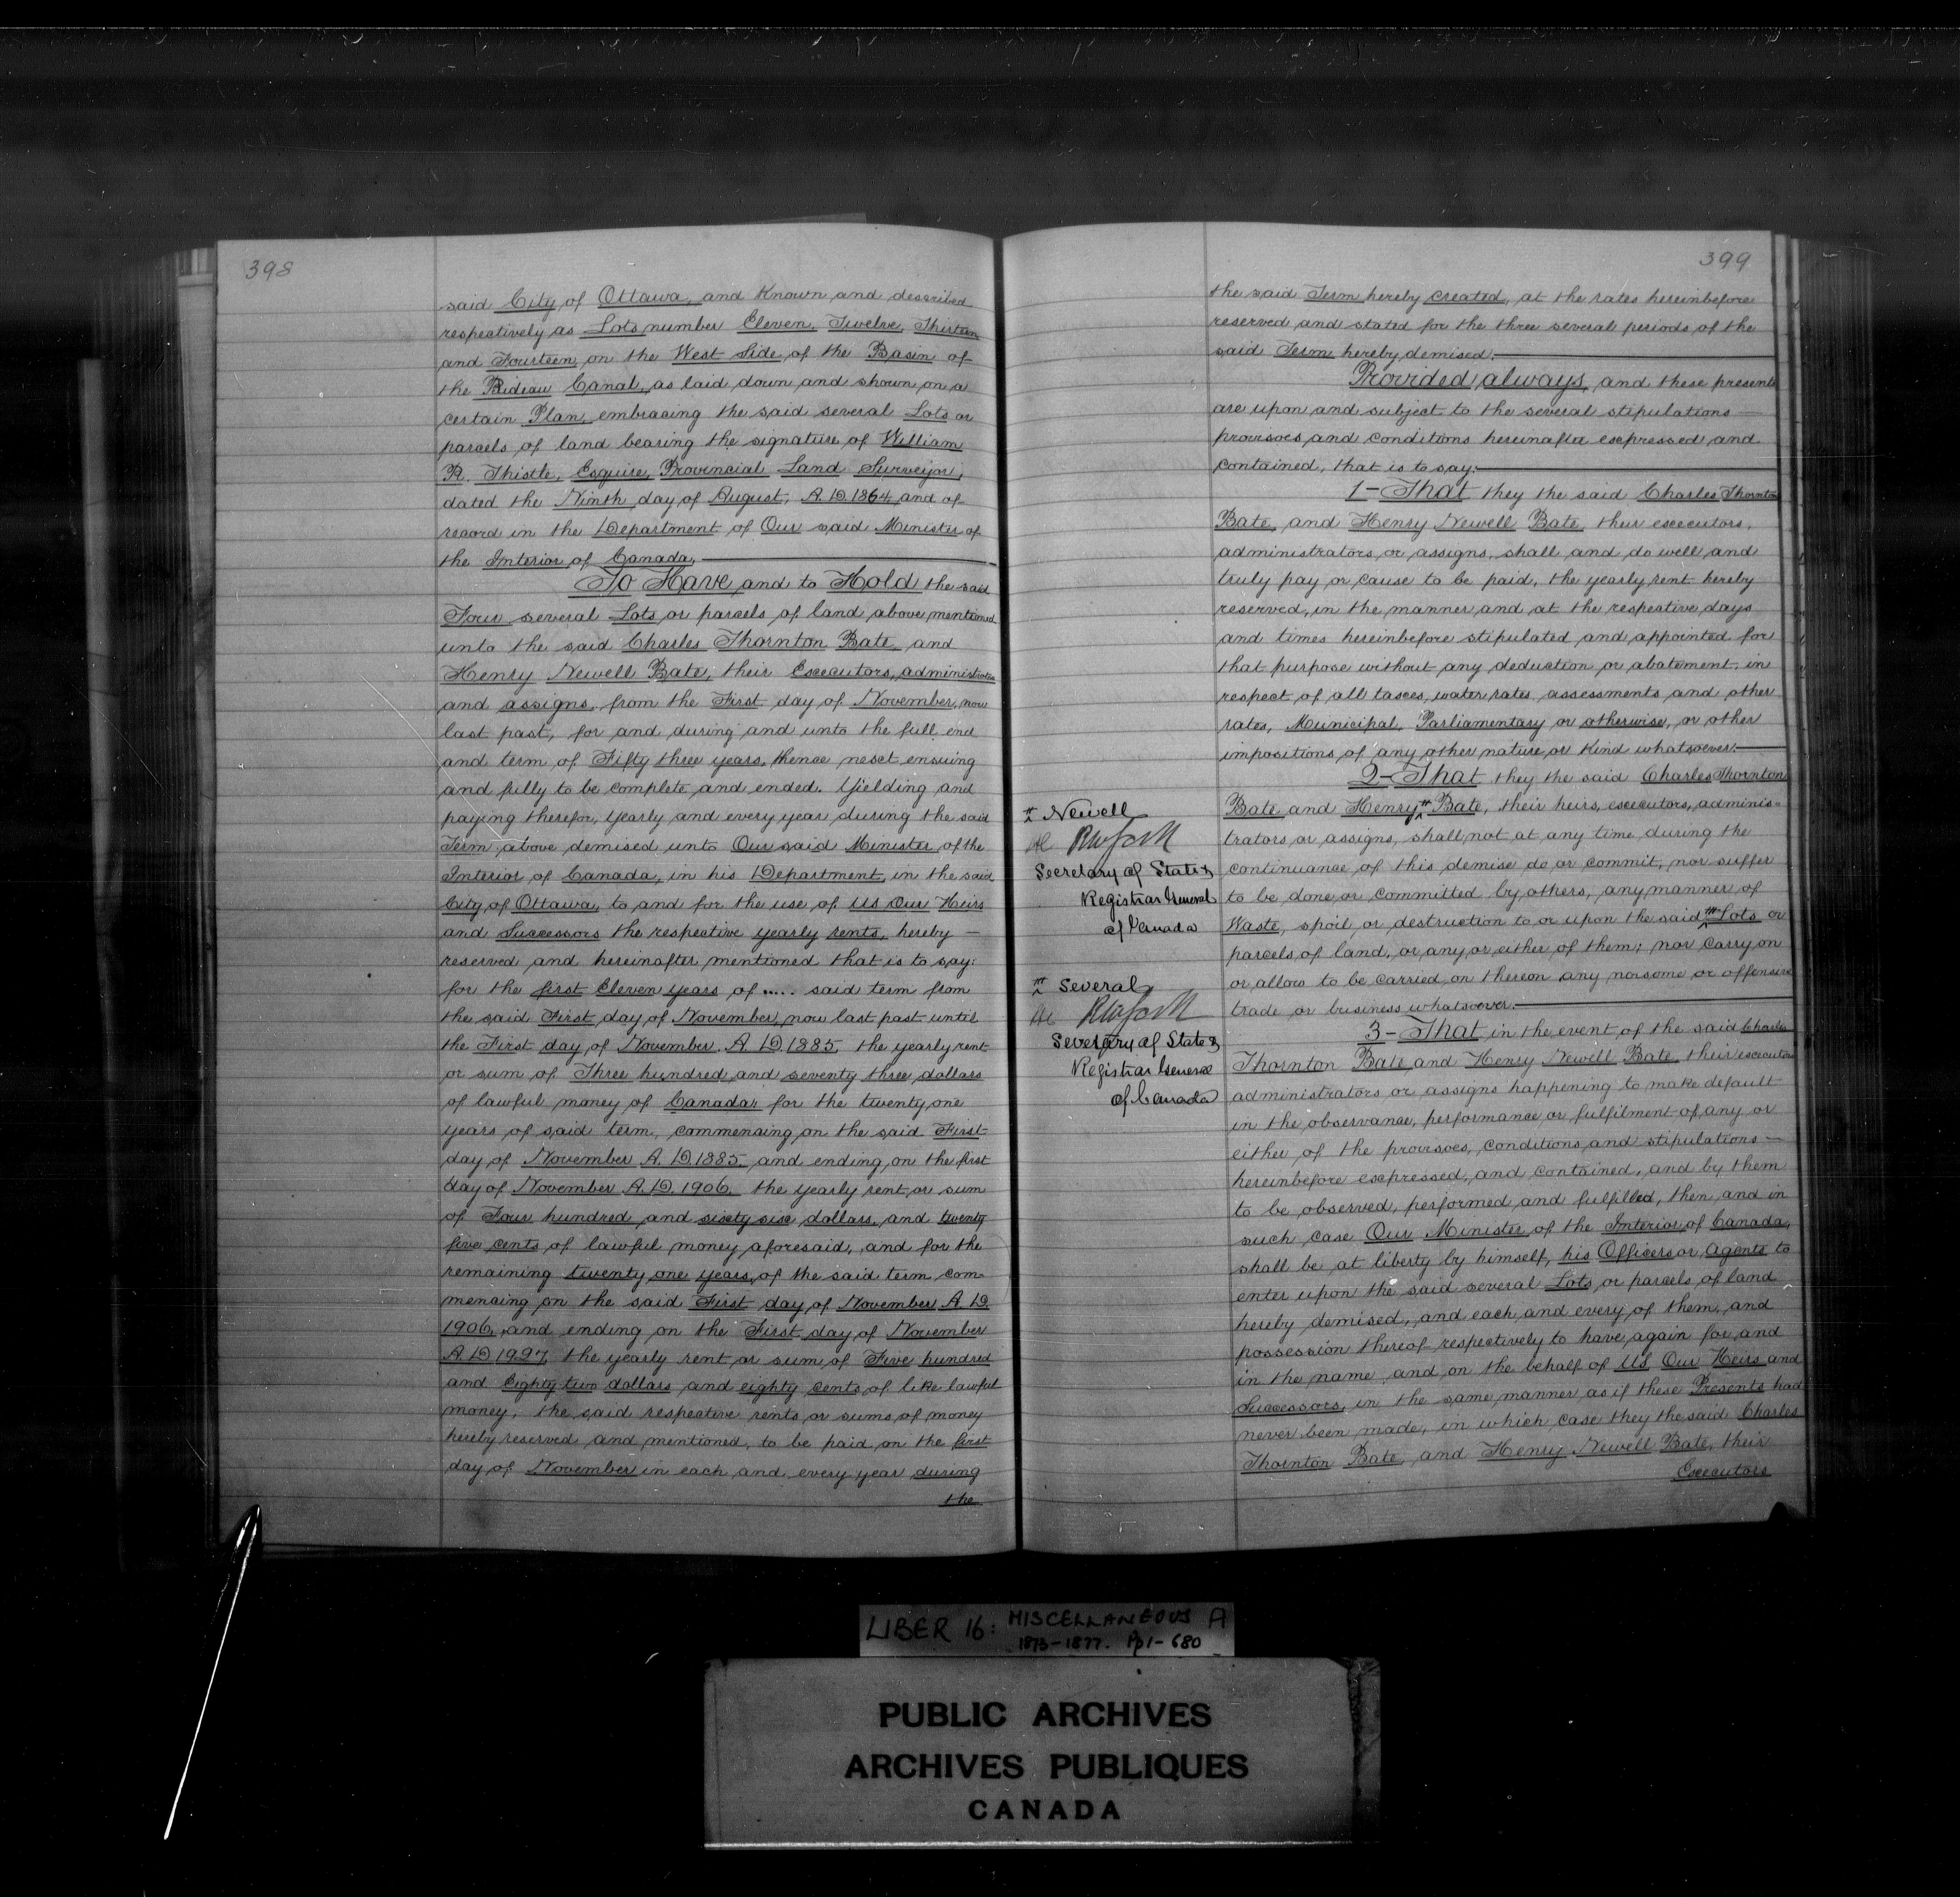 398
said City of Ottawa, and Known and described
respectively as Lots number Eleven, Twelve, Thirteen
and Fourteen, on the West Side of the Basin of
the Rideau Canal, as laid down and shown on a
certain Plan, embracing the said several Lots or
parcels of land bearing the signature of William
R. Thistle, Esquire, Provincial Land Surveyor,
dated the Ninth day of August, A.D. 1864, and of
record in the Department of Our said Minister of
the Interior of Canada,
To Have and to Hold the said
Four several Lots or parcels of land above mentioned
unto the said Charles Thornton Bate, and
Henry Newell Bate, their Executors, administrators
and assigns, from the First day of November, now
last past, for and during and unto the full end
and term of Fifty three years, thence next ensuing
and fully to be complete and ended. Yielding and
paying therefor, yearly and every year during the said
Term above demised unto Our said Minister of the
Interior of Canada, in his Department, in the said
City of Ottawa, to and for the use of Us Our Heirs
and Successors the respective yearly rents, hereby —
reserved and hereinafter mentioned that is to say:
for the first Eleven years of ..... said term from
the said First day of November, now last past until
the First day of November, A.D. 1885, the yearly rent
or sum of Three hundred and seventy three dollars
of lawful money of Canada; for the twenty one
years of said term, commencing on the said First
day of November A.D. 1885, and ending on the first
day of November A.D. 1906, the yearly rent or sum
of Four hundred and sixty six dollars, and twenty
five cents of lawful money aforesaid, and for the
remaining twenty one years, of the said term com-
mencing on the said First day of November A.D.
1906, and ending on the First day of November
A.D. 1927, the yearly rent or sum of Five hundred
and Eighty two dollars and eighty cents of like lawful
money, the said respective rents or sums of money
hereby reserved and mentioned, to be paid on the first
day of November in each and every year during
the
399
the said Term hereby created, at the rates hereinbefore
reserved and stated for the three several periods of the
said Term hereby demised.
Provided always, and these presents
are upon and subject to the several stipulations —
provisoes and conditions hereinafter expressed and
contained, that is to say:
1- That they the said Charles Thornton
Bate, and Henry Newell Bate, their executors,
administrators, or assigns, shall and do well and
truly pay or cause to be paid, the yearly rent hereby
reserved, in the manner and at the respective days
and times hereinbefore stipulated and appointed for
that purpose without any deduction or abatement, in
respect of all taxes, water rates, assessments and other
rates, Municipal, Parliamentary or otherwise, or other
impositions of any other nature or kind whatsoever.
2- That they the said Charles Thornton
Bate and Henry Bate, their heirs, executors, adminis-
trators or assigns, shall not at any time during the
continuance of this demise do or commit, nor suffer
to be done or committed by others, any manner of
Waste, spoil or destruction to or upon the said Lots or
parcels of land, or any or either of them; nor carry on
or allow to be carried on thereon any noisome or offensive
trade or business whatsoever.
3- That in the event of the said Charles
Thornton Bate and Henry Newell Bate, their executors
administrators or assigns happening to make default
in the observance, performance or fulfilment of any or
either of the provisoes, conditions, and stipulations —
hereinbefore expressed, and contained, and by them
to be observed, performed and fulfilled, then and in
such case Our Minister of the Interior of Canada,
shall be at liberty by himself, his Officers or Agents to
enter upon the said several Lots or parcels of land
hereby demised, and each and every of them, and
possession thereof respectively to have again for and
in the name and on the behalf of Us Our Heirs and
Successors, in the same manner as if these Presents had
never been made, in which case they the said Charles
Thornton Bate, and Henry Newell Bate, their
Executors
Newell
Secretary of State &
Registrar General
of Canada
Several
Secretary of State &
Registrar General
of Canada
LIBER 16: MISCELLANEOUS A
1873-1877. Pp 1-680
PUBLIC ARCHIVES
ARCHIVES PUBLIQUES
CANADA